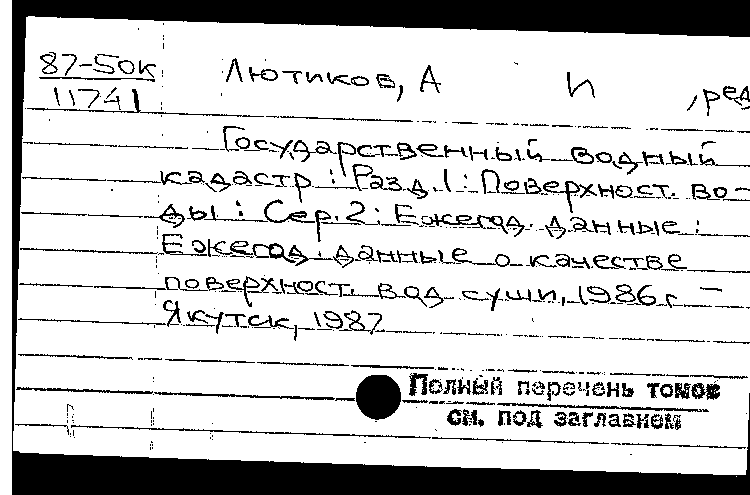 87-50к
11741
Лютиков, А И , ред
Государственный водный
кадастр : Разд. 1 : Поверхност. во-
ды : Сер. 2 : Ежегод. данные :
Ежегод. данные о качестве
поверхност. вод суши, 1986 г –
Якутск, 1987
Полный перечень томов
см. под заглавием